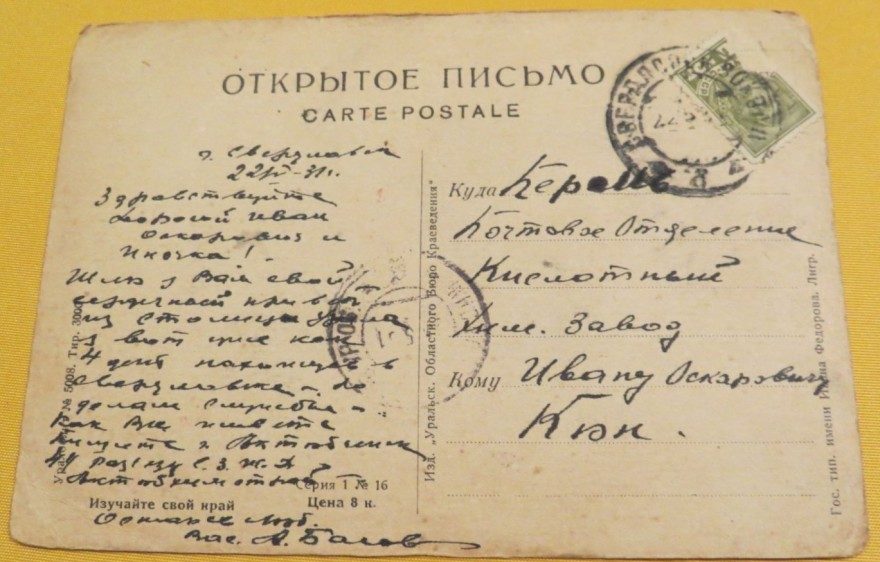 ОТКРЫТОЕ ПИСЬМО
CARTE POSTALE
г. Свердловск
31 г.
Здравствуйте
дорогой Иван
Оскарович и
Ниночка!
Шлю я Вам свой
сердечный привет
из столицы Урала
я вот уже как
4 дня нахожусь в
Свердловске по
делам службы
Как Вы живете
пишите г. Актюбинск
разъезд
Остаюсь Люб.
Вас. А. Басов
Урал № 5008. Тир. 3000
Серия 1 № 16
Изучайте свой край
Цена 8 к.
Изд. „Уральск. Областного Бюро Краеведения"
Куда
Почтовое Отделение
Кислотный
Хим. Завод
Кому Ивану Оскаровичу
Кюн.
Гос. тип. имени Ивана Федорова. Лигр.
СВЕРДЛОВСК